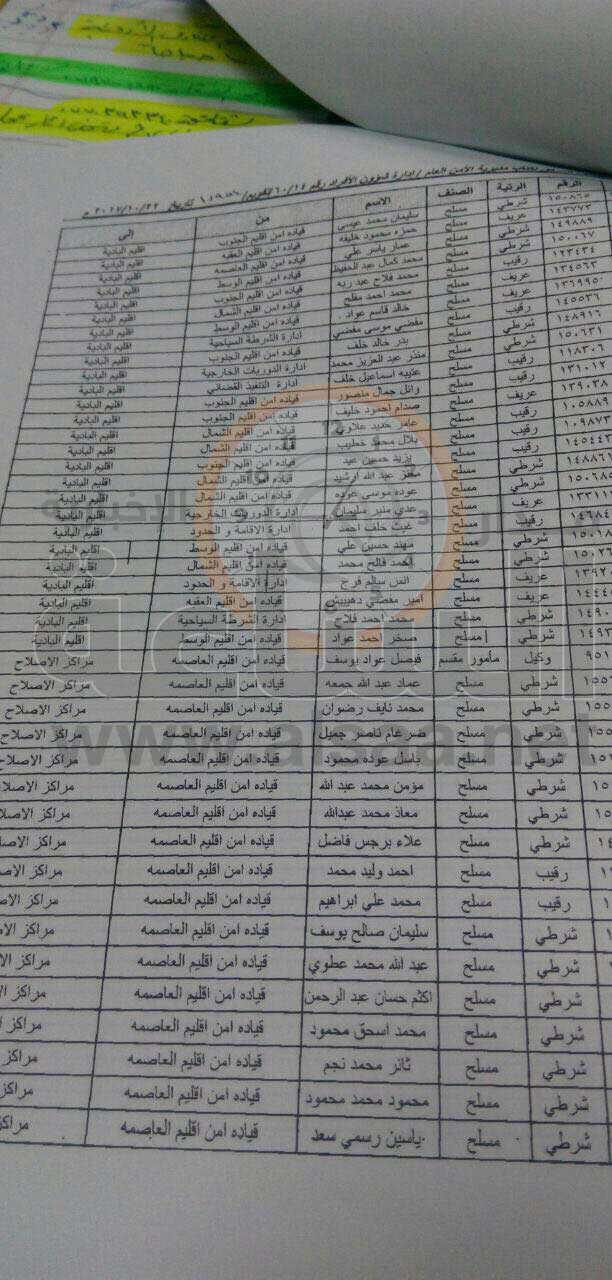 مديرية الامن العام / ادارة شؤون الأفراد رقم
الرقم الرتبة الصنف الاسم من الى
١٥٠٨٦٥ شرطي مسلح سليمان محمد عيسى قياده امن اقليم الجنوب اقليم البادية
١٤٣٧٧٣ عريف مسلح حمزه محمود خليفه قياده امن اقليم العقبه اقليم البادية
١٤٩٨٨٩ شرطي مسلح عمار ياسر علي قياده امن اقليم العاصمه اقليم البادية
١٥٠٠٦٧ شرطي مسلح محمد كمال عبد الحفيظ قياده امن اقليم الوسط اقليم البادية
١٢٣٤٣٤ رقيب مسلح محمد فلاح عبد ربه قياده امن اقليم الجنوب اقليم البادية
١٣٤٥٦٣ عريف مسلح محمد احمد مفلح قياده امن اقليم الشمال اقليم البادية
١٣٦٩٩٥٠ عريف مسلح خالد قاسم عواد قياده امن اقليم الوسط اقليم البادية
١٤٥٥٣٦ رقيب مسلح مفضي موسى مفضي ادارة الشرطة السياحية اقليم البادية
١٤٨٩١٦ شرطي مسلح بدر خالد خلف قياده امن اقليم الجنوب اقليم البادية
١٥٠٦٣١ شرطي مسلح منذر عبد العزيز محمد ادارة الدوريات الخارجية اقليم البادية
١١٨٣٠٦ رقيب مسلح عتيبه اسماعيل خلف ادارة التنفيذ القضائي اقليم البادية
١٣١٠١٢ رقيب مسلح وائل جمال منصور قياده امن اقليم الجنوب اقليم البادية
١٣٩٠٣٨ عريف مسلح صدام احمود خليف قياده امن اقليم الجنوب اقليم البادية
١٠٥٨٨٩ رقيب مسلح عامر حديد علاوي قياده امن اقليم الشمال اقليم البادية
١٠٩٨٧٣ رقيب مسلح بلال محمد خطيب قياده امن اقليم الشمال اقليم البادية
١٤٥٤٤٣ رقيب مسلح يزيد حسين عيد قياده امن اقليم الجنوب اقليم البادية
١٤٨٨٦١ شرطي مسلح معتز عبد الله ارشيد قياده امن اقليم الشمال اقليم البادية
١٥٠٦٨٥ شرطي مسلح عوده موسى عوده قياده امن اقليم الشمال اقليم البادية
١٣٣١١ عريف مسلح عدي منير سليمان ادارة الدوريات الخارجية اقليم البادية
١٤٦٨٤ رقيب مسلح غيث خلف احمد ادارة الاقامة و الحدود اقليم البادية
١٥٠١٨ شرطي مسلح مهند حسين علي قياده امن اقليم الوسط اقليم البادية
١٥٠٢٦ شرطي مسلح احمد فالح محمد قياده امن اقليم الشمال اقليم البادية
١٣٩٢٠ عريف مسلح انس سالم فرج ادارة الاقامة و الحدود اقليم البادية
١٤٤٤٥ عريف مسلح امير مفضي دهيبيش قياده امن اقليم العقبه اقليم البادية
١٤٩٠ شرطي مسلح محمد احمد فلاح ادارة الشرطة السياحية اقليم البادية
١٤٩٣ شرطي مسلح صخر احمد عواد قياده امن اقليم الوسط اقليم البادية
٩٥١ وكيل مأمور مقسم فيصل عواد يوسف قياده امن اقليم العاصمه مراكز الاصلاح
١٥٥ شرطي مسلح عماد عبد الله جمعه قياده امن اقليم العاصمه مراكز الاصلاح
١٥٥ شرطي مسلح محمد نايف رضوان قياده امن اقليم العاصمه مراكز الاصلاح
١٥٥ شرطي مسلح ضرغام ناصر جميل قياده امن اقليم العاصمه مراكز الاصلاح
١٥ شرطي مسلح باسل عوده محمود قياده امن اقليم العاصمه مراكز الاصلاح
١٥ شرطي مسلح مؤمن محمد عبد الله قياده امن اقليم العاصمه مراكز الاصلا
١٥ شرطي مسلح معاذ محمد عبدالله قياده امن اقليم العاصمه مراكز الاصلا
١٤ شرطي مسلح علاء برجس فاضل قياده امن اقليم العاصمه مراكز الاصلا
١ رقيب مسلح احمد وليد محمد قياده امن اقليم العاصمه مراكز الاصا
١ رقيب مسلح محمد علي ابراهيم قياده امن اقليم العاصمه مراكز الاص
١ شرطي مسلح سليمان صالح يوسف قياده امن اقليم العاصمه مراكز الاص
شرطي مسلح عبد الله محمد عطوي قياده امن اقليم العاصمه مراكز الاص
شرطي مسلح اكثم حسان عبد الرحمن قياده امن اقليم العاصمه مراكز الا
شرطي مسلح محمد اسحق محمود قياده امن اقليم العاصمه مراكز الا
شرطي مسلح ثائر محمد نجم قياده امن اقليم العاصمه مراكز ا
شرطي مسلح محمود محمد محمود قياده امن اقليم العاصمه مراكز
شرطي مسلح ياسين رسمي سعد قياده امن اقليم العاصمه مراكز
الاخبارية
www.alsaa.net